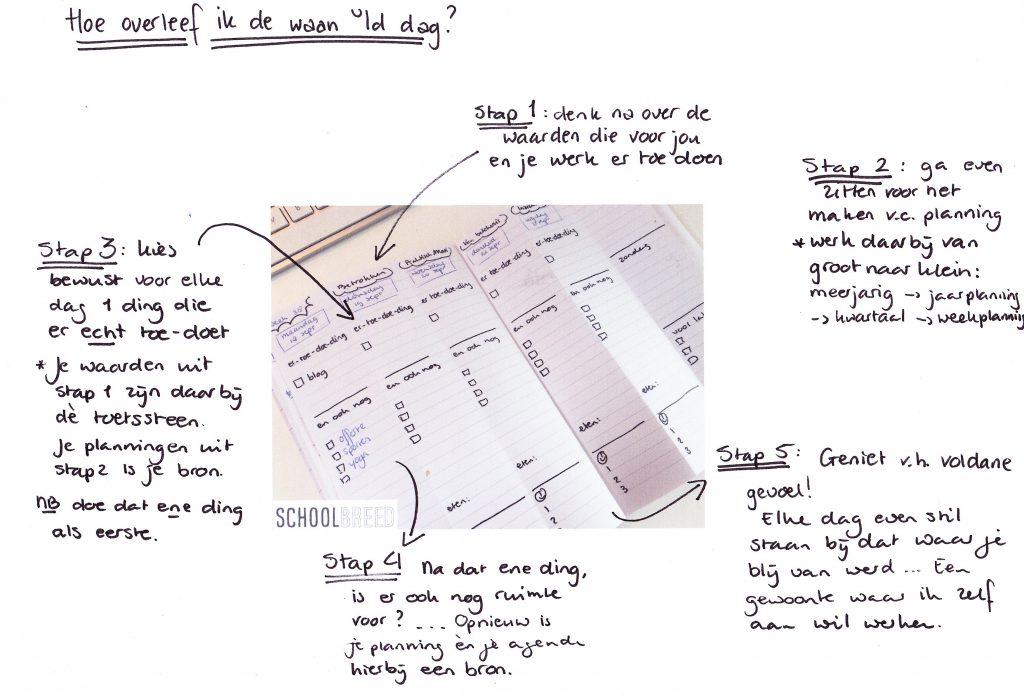 Hoe overleef ik de waan v/d dag?
Stap 1: denk na over de
waarden die voor jou
en je werk er toe doen
Stap 2: ga even
zitten voor het
maken v.e. planning
* werk daarbij van
groot naar klein:
meerjarig -> jaarplanning
-> kwartaal -> weekplanning
Stap 3: kies
bewust voor elke
dag 1 ding die
er echt toe-doet
* Je waarden uit
stap 1 zijn daarbij
dè toetssteen.
Je planningen uit
stap 2 is je bron.
NB doe dat ene ding
als eerste.
maandag
er-toe-doe-ding
blog
en ook nog
offerte
sporten
yoga
Betrokken
dinsdag
19 sept
er-toe-doe-ding
en ook nog
eten:
woensdag
20 sept
er toe-doe-ding
en ook nog
eten:
1
2
3
donderdag
er-toe-doe-ding
en ook nog
eten:
1
2
3
er-toe-doe-ding
en ook nog
eten:
1
2
3
zondag
SCHOOLBREED
Stap 4 Na dat ene ding,
is er ook nog ruimte
voor? ... Opnieuw is
je planning èn je agenda
hierbij een bron.
Stap 5: Geniet v.h. voldane
gevoel!
Elke dag even stil
staan bij dat waar je
blij van werd ... Een
gewoonte waar ik zelf
aan wil werken.